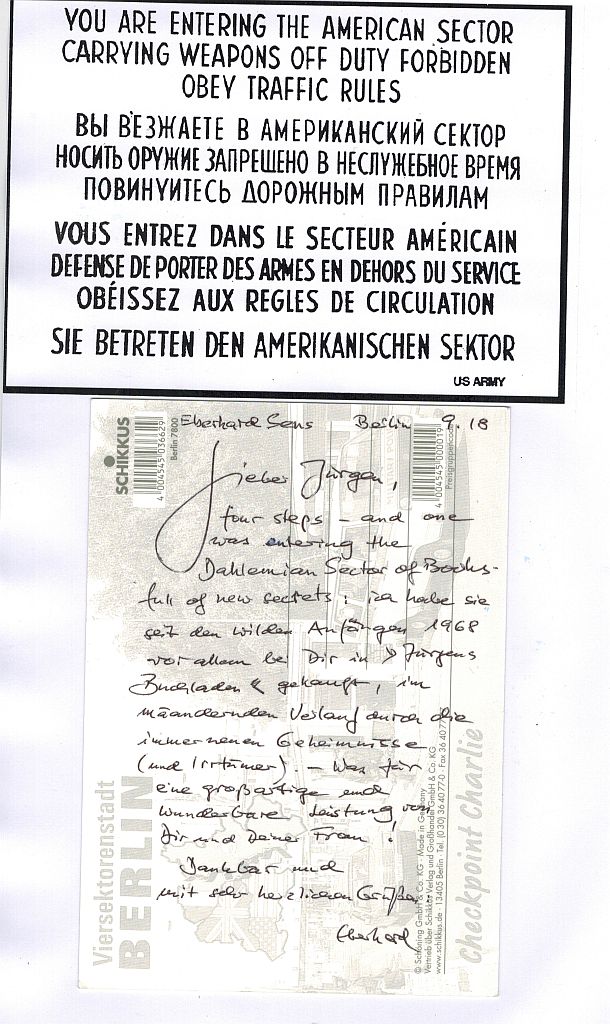 YOU ARE ENTERING THE AMERICAN SECTOR
CARRYING WEAPONS OFF DUTY FORBIDDEN
OBEY TRAFFIC RULES
ВЫ ВЪЕЗЖАЕТЕ В АМЕРИКАНСКИЙ СЕКТОР
НОСИТЬ ОРУЖИЕ ЗАПРЕЩЕНО В НЕСЛУЖЕБНОЕ ВРЕМЯ
ПОВИНУЙТЕСЬ ДОРОЖНЫМ ПРАВИЛАМ
VOUS ENTREZ DANS LE SECTEUR AMÉRICAIN
DEFENSE DE PORTER DES ARMES EN DEHORS DU SERVICE
OBÉISSEZ AUX REGLES DE CIRCULATION
SIE BETRETEN DEN AMERIKANISCHEN SEKTOR
US ARMY
SCHIKKUS
4 004545 036629
Berlin 7800
Eberhard Sens Berlin 9.18
4 004545 000019
Preisgruppencode
Lieber Jürgen,
four steps – and one
was entering the
Dahlemian Sector of Books-
full of new secrets: ich habe sie
seit den wilden Anfängen 1968
vor allem bei Dir in »Jürgens
Buchladen« gekauft, im
mäandernden Verlauf durch die
immer neuen Geheimnisse
(und Irrtümer). – Was für
eine großartige und
wunderbare Leistung von
Dir und Deiner Frau!
Dankbar und
mit sehr herzlichen Grüßen
Eberhard
Viersektorenstadt
BERLIN
© Schöning GmbH & Co. KG · Made in Germany
Vertrieb über Schikkus Verlag und Großhandel GmbH & Co. KG
www.schikkus.de · 13405 Berlin · Tel. (0 30) 36 40 77-0 · Fax 36 40 77
Checkpoint Charlie